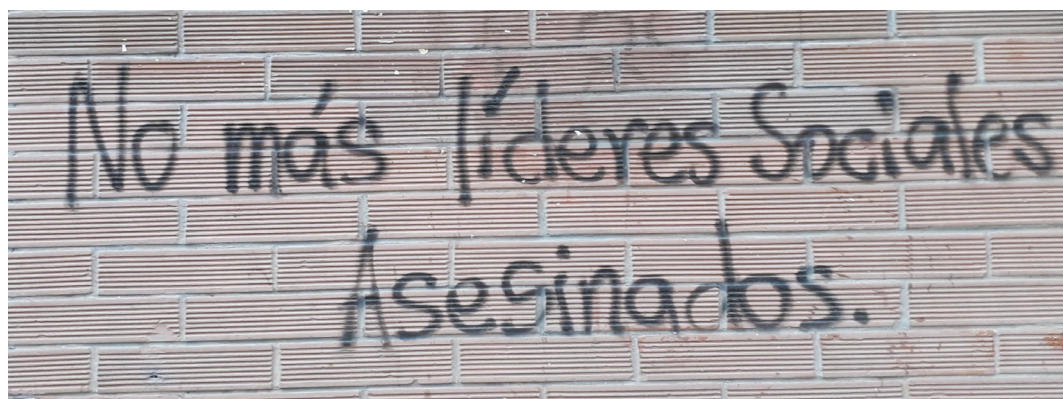 No más líderes Sociales
Asesinados.